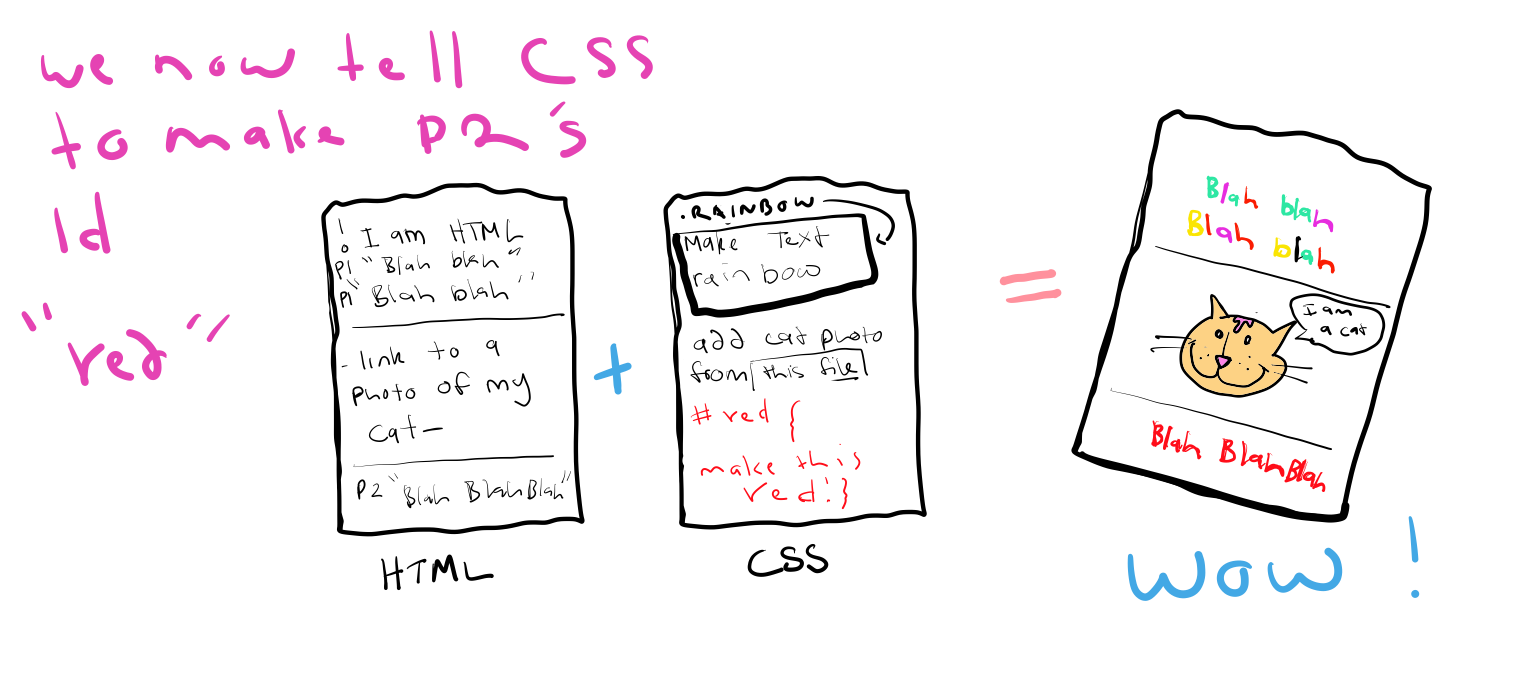 we now tell CSS
to make P2's
Id
"red"
! I am HTML
P1 "Blah blah"
P1 "Blah blah"
- link to a
photo of my
cat-
P2 "Blah Blah Blah"
HTML
+
.RAINBOW
Make Text
rainbow
add cat photo
from this file
#red {
make this
red!}
CSS
=
Blah blah
Blah blah
I am
a cat
Blah Blah Blah
WOW!